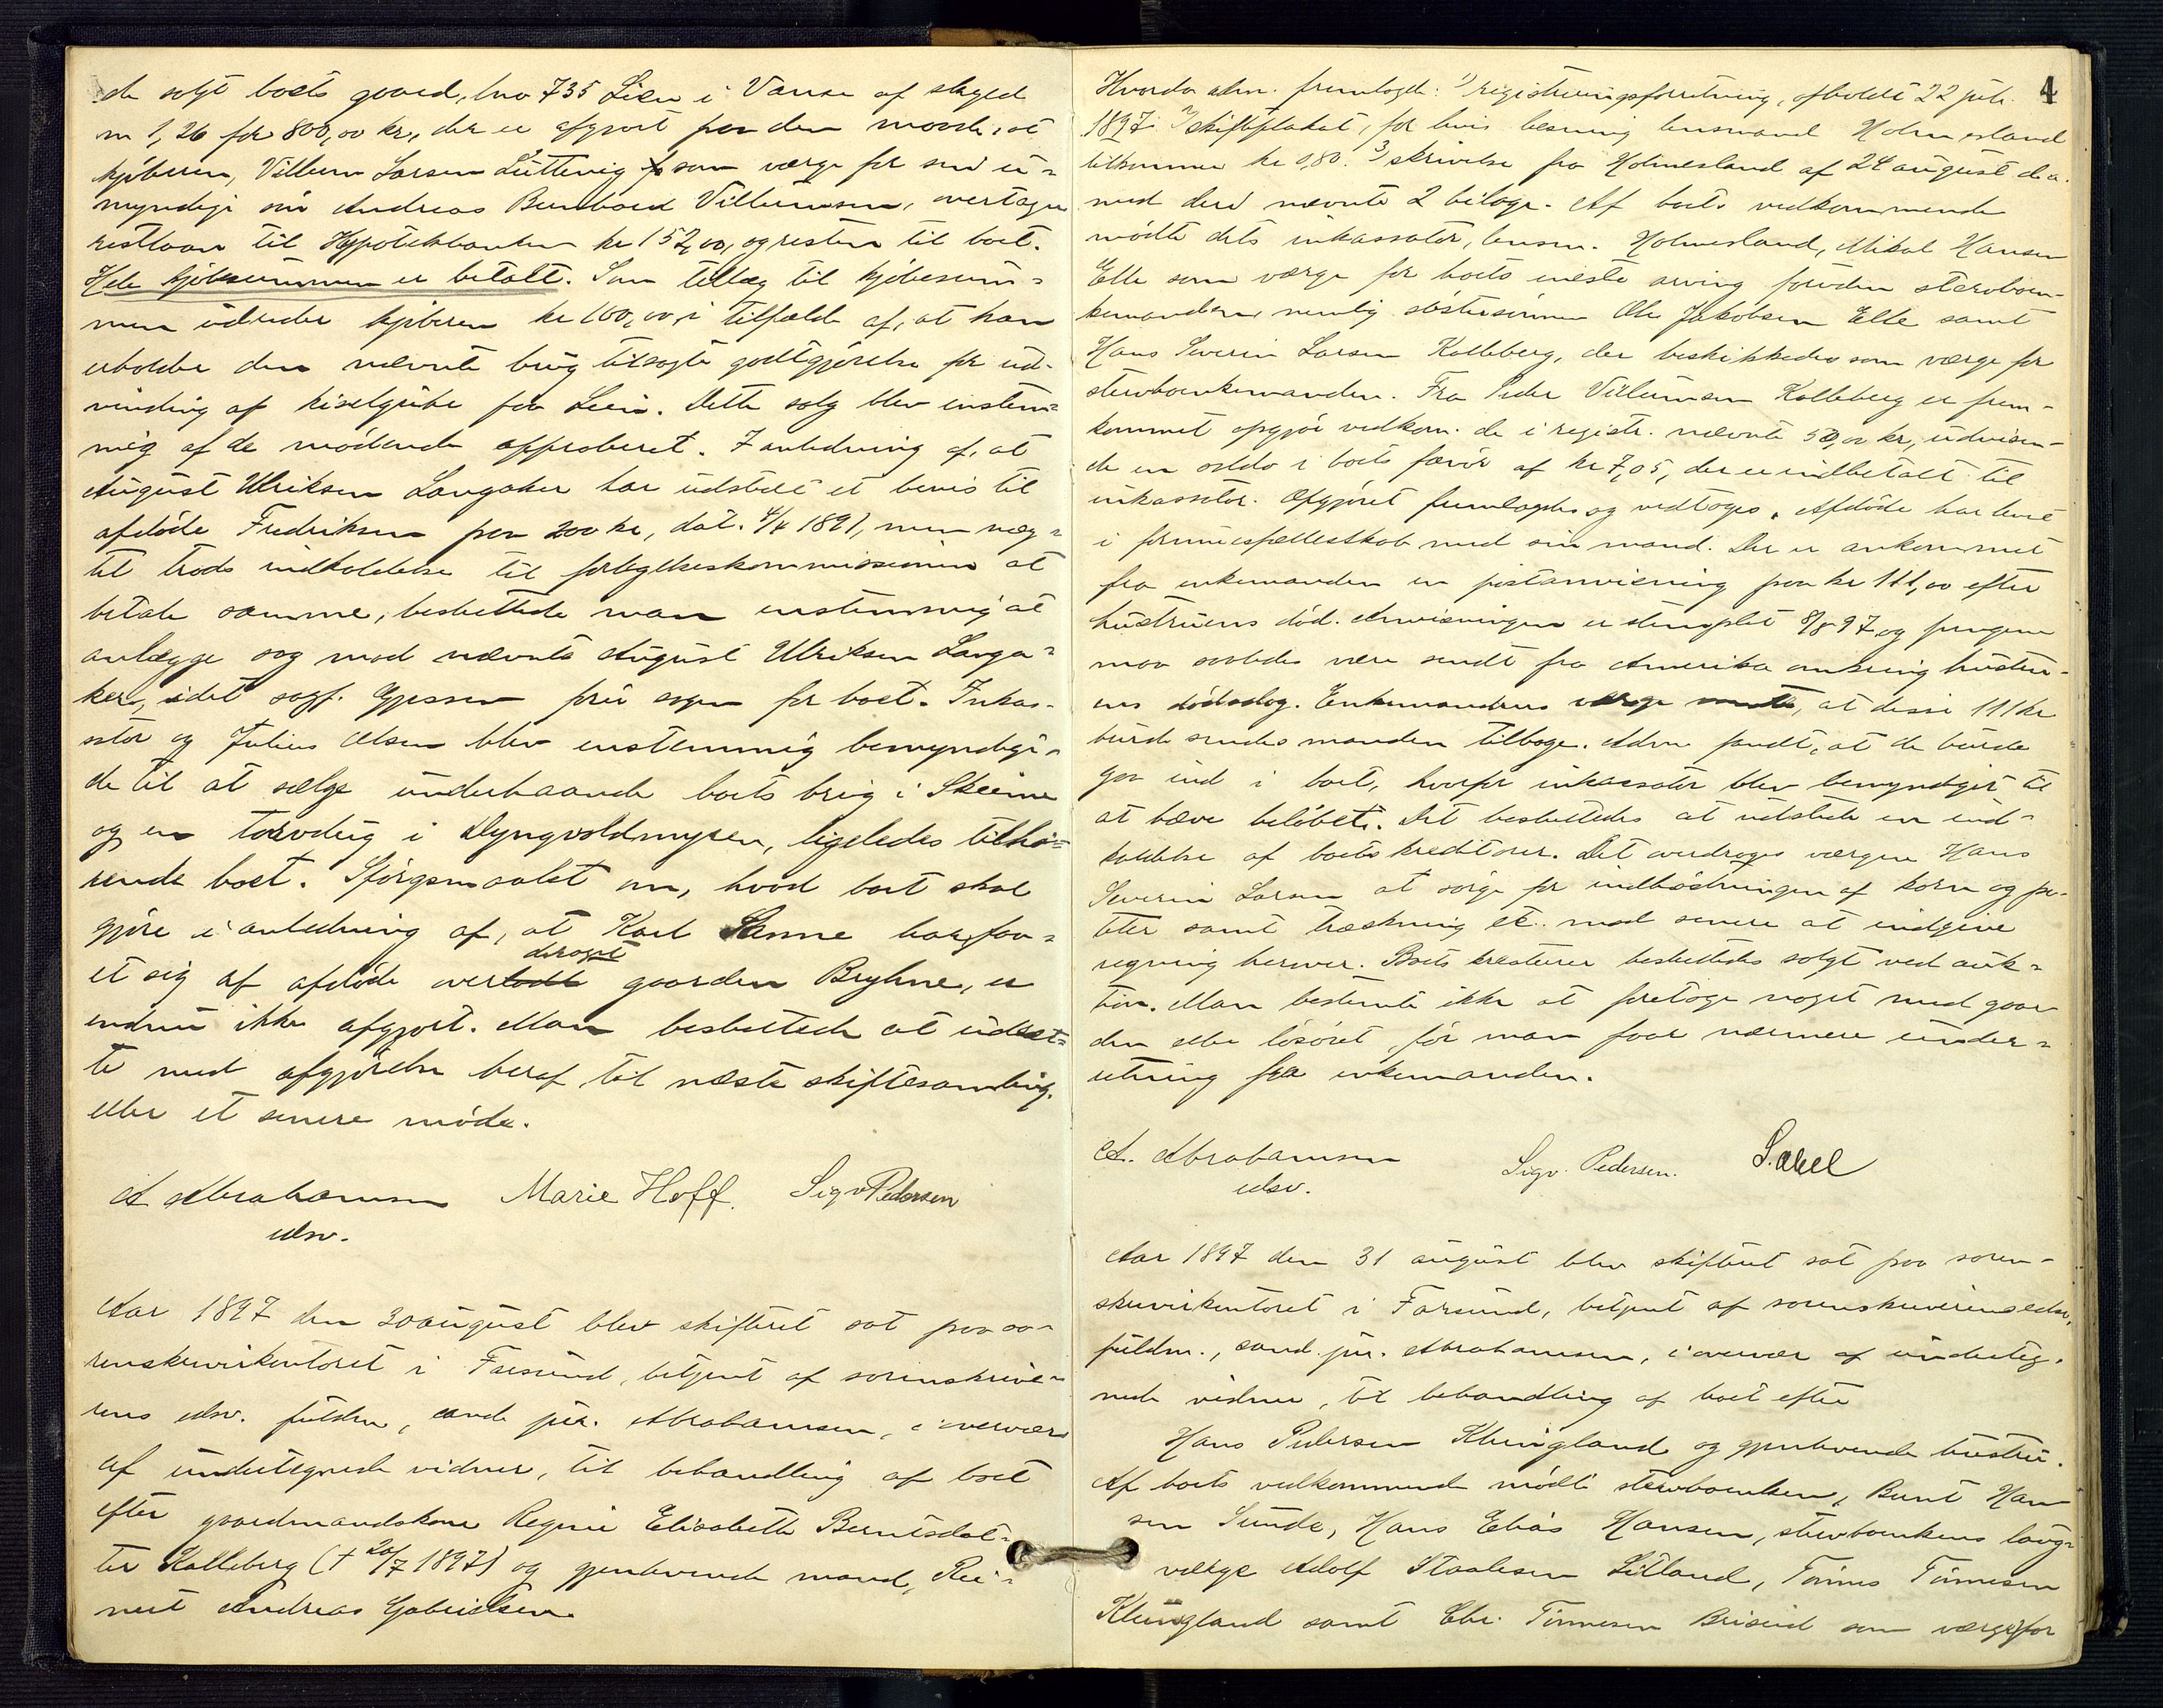 de solgt boets gaard, bno 735 Lien i Vanse af skyld
m 1,26 for 800,00 kr, der er afgjort paa den maade, at
kjøberen, Villum Larsen Lüttevig som værge for sin u-
myndige søn Andreas Bernhard Villumsen, overtager
restlaan til Hypotekbanken kr 152,00, og resten til boet.
Hele kjøbesummen er betalt. Som tillæg til kjøbesum-
men udreder kjøberen kr 100,00 i tilfælde af, at han
erholder den nævnte brug tilsagte godtgjørelse for ud-
vinding af kiselgube fra Lien. Dette salg blev enstem-
mig af de mødende approberet. I anledning af, at
August Ulriksen Langaker har udstedt et bevis til
afdøde Fredriksen paa 200 kr, dat. 4/4 1891, men næg-
tet trods indkaldelse til forligelseskommissionen at
betale samme, besluttede man enstemmig at
anlægge sag mod nævnte August Ulriksen Langa-
ker, idet sagf. Gjessen før sagen for boet. Inkas-
sator og Julius Olsen blev enstemmig bemyndige-
de til at sælge underhaanden boets brug i Skeime
og en torvteig i Dyngvoldmyren, ligeledes tilhø-
rende boet. Spørgsmaalet om, hvad boet skal
gjøre i anledning af, at Karl Sanne har faa-
et sig af afdøde overladt gaarden Bryhne, er
draget
endnu ikke afgjort. Man besluttede at udsæt-
te med afgjørelse heraf til næste skiftesamling
eller et senere møde.
A Abrahamsen Marie Hoff. Sigv Pedersen
edsv.
Aar 1897 den 30 august blev skifteret sat paa so-
renskriverkontoret i Farsund, betjent af sorenskrive-
rens edsv. fuldm, cand. jur. Abrahamsen, i overvær
af undertegnede vidner, til behandling af boet
efter gaardmandskone Regine Elisabeth Berntsdat-
ter Kalleberg († 20/7 1897) og gjenlevende mand, Rei-
nert Andreas Gabrielsen.
4
Hvorda adm. fremlagde: 1) registreringsforretning, afholdt 22 juli
1897 2) skifteplakat, for hvis læsning lensmand Holmesland
tilkommer kr 0,80. 3) skrivelse fra Holmesland af 24 august d.a.
med deri nævnte 2 bilage. Af boets vedkommende
mødte dets inkassator, lensm. Holmesland, Mikal Hansen
Elle som værge for boets eneste arving foruden stervboen-
kemanden, nemlig søstersønnen Ole Jakobsen Elle samt
Hans Severin Larsen Kalleberg, der beskikkedes som værge for
stervboenkemanden. Fra Peder Villumsen Kalleberg er frem-
kommet opgjør vedkom. de i registr. nævnte 50,00 kr, udvisen-
de en saldo i boets favør af kr 7,05, der er indbetalt til
inkassator. Opgjøret fremlagdes og vedtoges. Afdøde har levet
i formuesfællesskab med sin mand. Der er ankommet
fra enkemanden en postanvisning paa kr 111,00 efter
hustruens død. Anvisningen er stemplet 8/8 97 og pengene
maa saaledes være sendt fra Amerika omkring hustru-
ens dødsdag. Enkemandens værge mente, at disse 111 kr
burde sendes manden tilbage. Adm fandt, at de burde
gaa ind i boet, hvorfor inkassator blev bemyndiget til
at hæve beløbet. Det besluttedes at udstede en ind-
kaldelse af boets kreditorer. Det overdroges værgen Hans
Severin Larsen at sørge for indhøstningen af korn og po-
teter samt træskning etc. mod senere at indgive
regning herover. Boets kreaturer besluttedes solgt ved auk-
tion. Man bestemte ikke at foretage noget med gaar-
den eller løsøret, før man faar nærmere under-
retning fra enkemanden.
A. Abrahamsen Sigv. Pedersen. S. Abel
edsv.
Aar 1897 den 31 august blev skifteret sat paa soren-
skriverkontoret i Farsund, betjent af sorenskriverens edsv.
fuldm., cand. jur. Abrahamsen, i overvær af underteg-
nede vidner, til behandling af boet efter
Hans Pedersen Klungland og gjenlevende hustru.
Af boets vedkommende mødte stervboenken, Bernt Han-
sen Sunde, Hans Elias Hansen, stervboenkens laug-
værge Adolf Staalesen Litland, Tønnes Tønnesen
Klungland samt Chr. Tønnesen Briseid som værge for